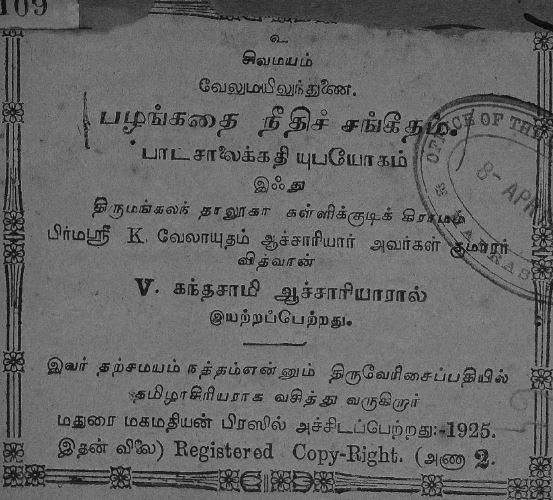 109
உ
சிவமயம்
வேலுமயிலுந்துணை.
பழங்கதை நீதிச் சங்கீதம்.
பாடசாலைக்கதி யுபயோகம்
இஃது
திருமங்கலந் தாலூகா கள்ளிக்குடிக் கிராமம்
பிர்மஸ்ரீ K. வேலாயுதம் ஆச்சாரியார் அவர்கள் குமாரர்
வித்வான்
V. கந்தசாமி ஆச்சாரியாரால்
இயற்றப்பெற்றது.
இவர் தற்சமயம் நத்தம்என்னும் திருவேரிசைப்பதியில்
தமிழாசிரியராக வசித்து வருகிறார்
மதுரை மகமதியன் பிரஸில் அச்சிடப்பெற்றது:-1925.
இதன் விலை) Registered Copy-Right. (அணா 2.
OFFICE OF THE
8- APR